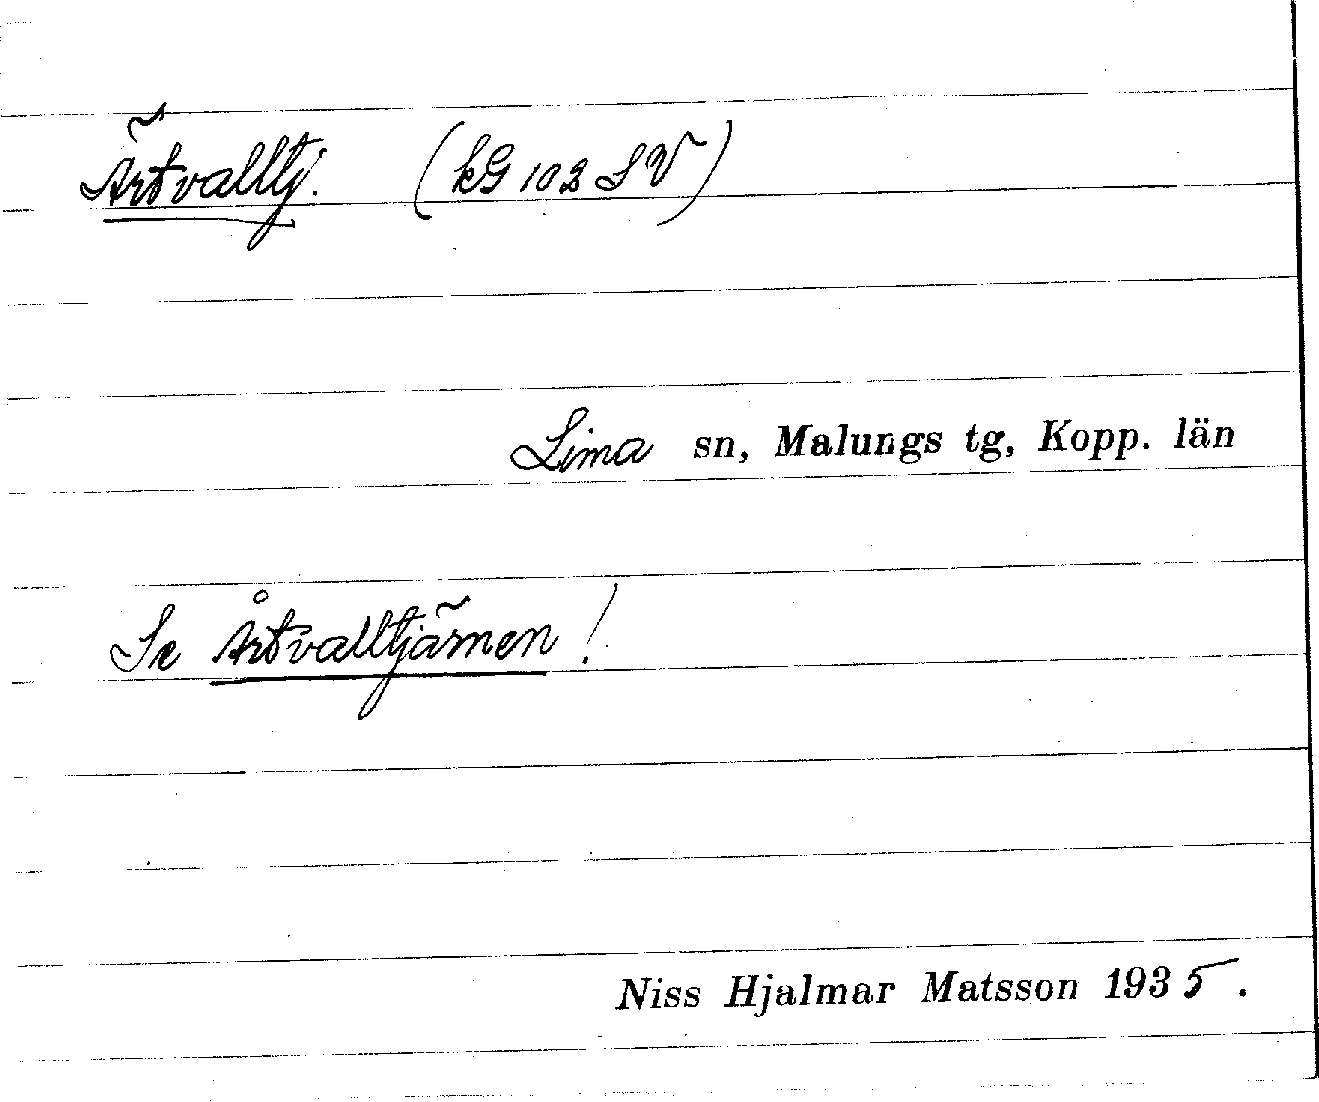 Ärtvalltj. (kG 102 SV)
Lima sn, Malungs tg, Kopp. län
Se Årtvalltjärnen!
Niss Hjalmar Matsson 1935.